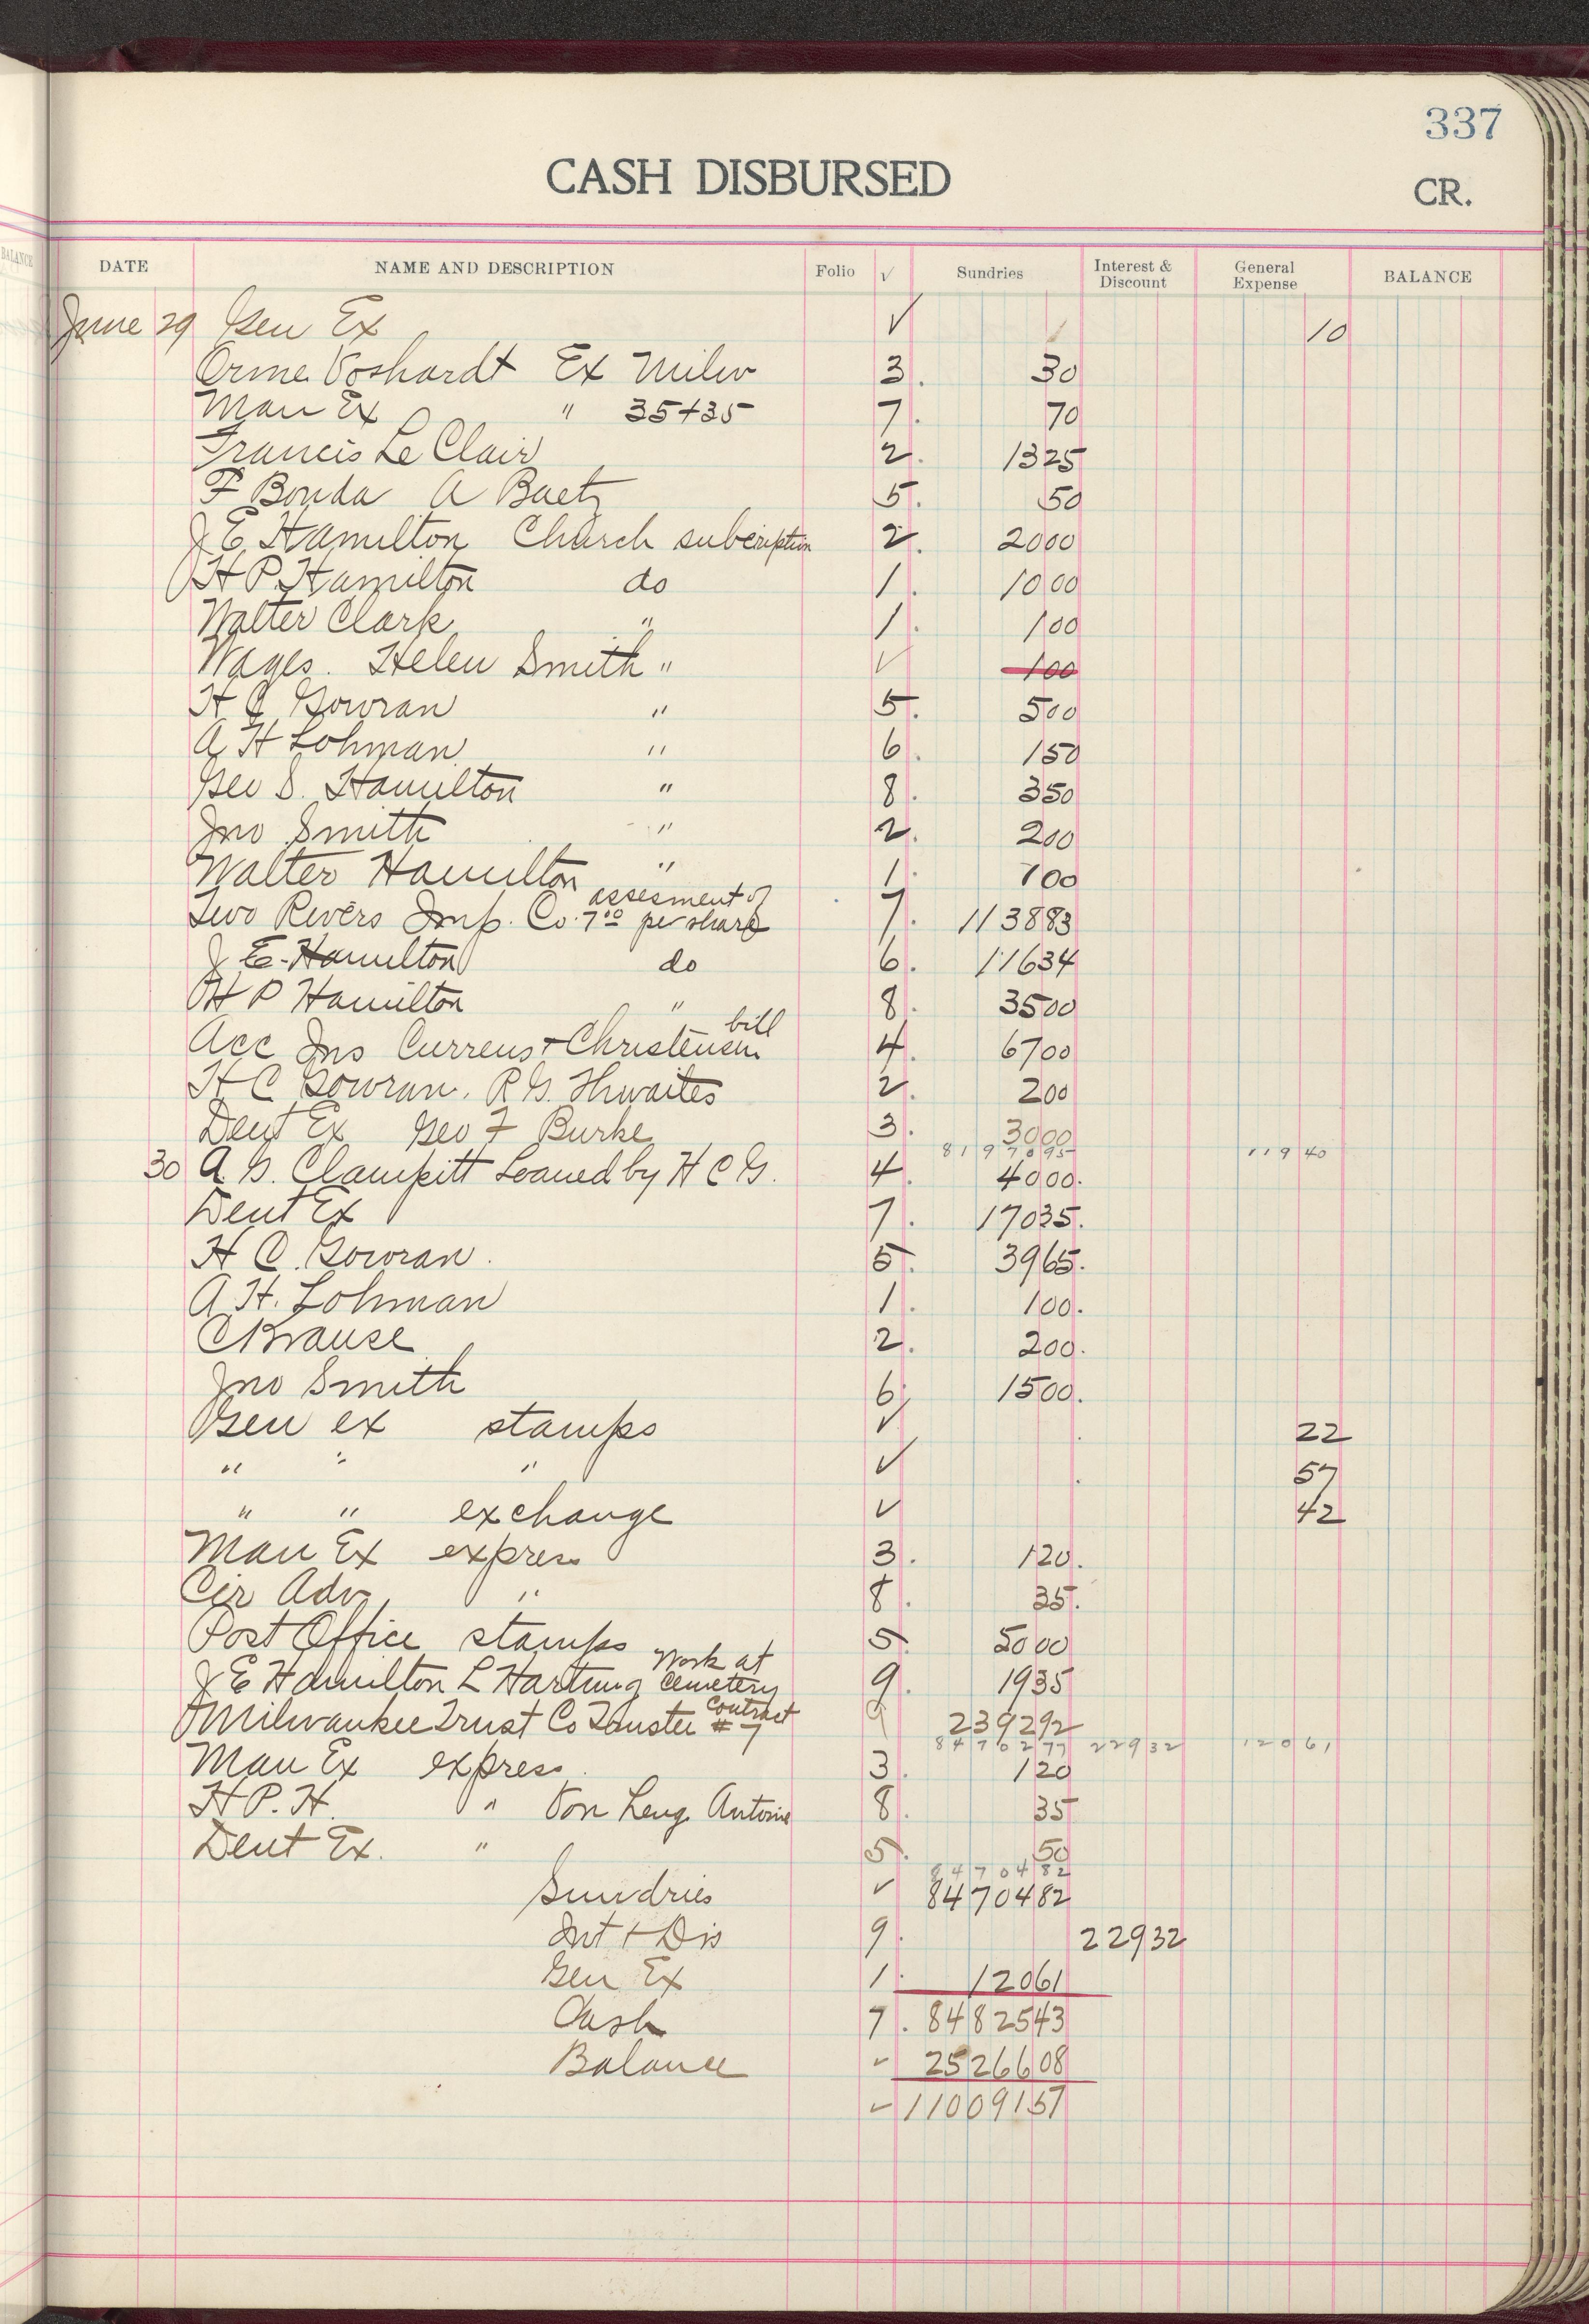 337
CASH DISBURSED
CR.
BALANCE
DATE NAME AND DESCRIPTION Folio ✓ Sundries Interest & Discount General Expense BALANCE
June 29 Gen Ex ✓ 10
Orme Voshardt Ex Milw 3. 30
Man Ex " 35+35 7. 70
Francis Le Clair 2. 1325
F Bonda A Baetz 5. 50
J E Hamilton Church subcription 2. 2000
H P. Hamilton do 1. 1000
Walter Clark " 1. 100
Wages. Helen Smith " ✓ 100
H C Gowran " 5. 500
A H Lohman " 6. 150
Geo S. Hamilton " 8. 350
Jno Smith " 2. 200
Walter Hamilton " 1. 100
Two Rivers Imp. Co. assesment of 7.00 per share 7. 113883
J E. Hamilton do 6. 11634
H P Hamilton " 8. 3500
Acc Ins Currens + Christensen bill 4. 6700
H C Gowran. R G. Thwaites 2. 200
Dent Ex Geo F Burke 3. 3000
8197895 11940
30 A G. Clampitt Loaned by H C G. 4. 4000.
Dent Ex 7. 17035.
H C. Gowran. 5. 3965.
A H. Lohman 1. 100.
C Krause 2. 200.
Jno Smith 6. 1500.
Gen ex stamps ✓ 22
" " " ✓ 57
" " exchange ✓ 42
Man Ex express 3. 120.
Cir Adv " 8. 35.
Post Office stamps 5. 5000
J E Hamilton L Hartung Work at Cemetery 9. 1935
Milwaukee Trust Co Trustee Contract # 7 9 239292
8470277 22932 12061
Man Ex express. 3. 120
H P. H. " Von Leng Antoine 8. 35
Dent Ex. " 5. 50
8470482
Sundries ✓ 8470482
Int + Dis 9. 22932
Gen Ex 1. 12061
Cash 7. 8482543
Balance ✓ 2526608
✓ 11009157